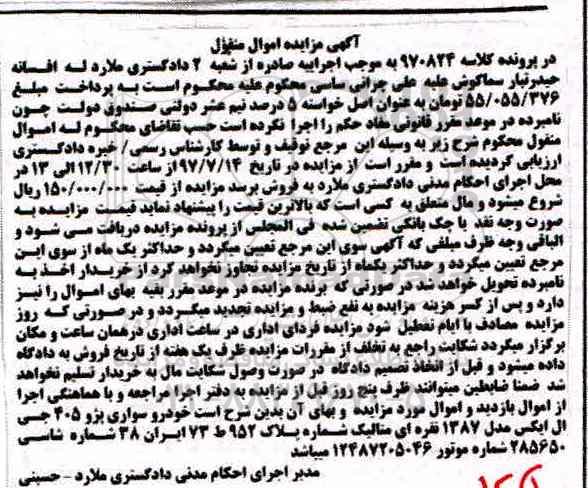 آگهی مزایده اموال منقول
در پرونده کلاسه ۹۷۰۸۲۴ به موجب اجراییه صادره از شعبه ۲ دادگستری ملارد له افسانه
حیدرتبار سماکوش علیه علی چراتی ساسی محکوم علیه محکوم است به پرداخت مبلغ
۵۵/۰۵۵/۳۷۶ تومان به عنوان اصل خواسته ۵ درصد نیم عشر دولتی صندوق دولت چون
نامبرده در موعد مقرر قانونی مفاد حکم را اجرا نکرده است حسب تقاضای محکوم له اموال
منقول محکوم شرح زیر به وسیله این مرجع توقیف و توسط کارشناس رسمی/ خبره دادگستری
ارزیابی گردیده است و مقرر است از مزایده در تاریخ ۹۷/۷/۱۴ از ساعت ۱۲/۳۰ الی ۱۳ در
محل اجرای احکام مدنی دادگستری ملارد به فروش برسد مزایده از قیمت ۱۵۰/۰۰۰/۰۰۰ ریال
شروع میشود و مال متعلق به کسی است که بالاترین قیمت را پیشنهاد نماید قیمت مزایده به
صورت وجه نقد یا چک بانکی تضمین شده فی المجلس از پرونده مزایده دریافت می شود و
الباقی وجه ظرف مبلغی که آگهی سوی این مرجع تعیین میگردد و حداکثر یک ماه از سوی این
مرجع تعیین میگردد و حداکثر یکماه از تاریخ مزایده تجاوز نخواهد کرد از خریدار اخذ به
نامبرده تحویل خواهد شد در صورتی که برنده مزایده در موعد مقرر بقیه بهای اموال را نیز
دارد و پس از کسر هزینه مزایده به نفع ضبط و مزایده تجدید میگردد و در صورتی که روز
مزایده مصادف با ایام تعطیل شود مزایده فردای اداری در ساعت اداری درهمان ساعت و مکان
برگزار میگردد شکایت راجع به تخلف از مقررات مزایده ظرف یک هفته از تاریخ فروش به دادگاه
داده میشود و قبل از اتخاذ تصمیم دادگاه در صورت وصول شکایت مال به خریدار تسلیم نخواهد
شد ضمنا ضابطین میتوانند ظرف پنج روز قبل از مزایده به دفتر اجرا مراجعه و با هماهنگی اجرا
از اموال بازدید و اموال مورد مزایده و بهای آن بدین شرح است خودرو سواری پژو ۴۰۵ جی
ال ایکس مدل ۱۳۸۷ نقره ای متالیک شماره پلاک ۹۵۲ ط ۷۳ ایران ۳۸ شماره شاسی
۲۸۵۶۵۰ شماره موتور ۱۲۴۸۷۲۰۵۰۴۶ میباشد
مدیر اجرای احکام مدنی دادگستری ملارد - حسینی